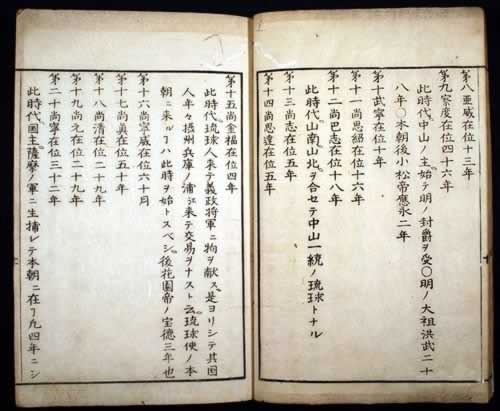 第八亜威在位十三年
第九察度在位四十六年
此時代中山ノ主始テ明ノ封爵ヲ受〇明ノ大祖洪武二十
八年〇本朝後小松帝應永二年
第十武寧在位十年
第十一尚思紹在位十六年
第十二尚巴志在位十八年
此時代山南山北ヲ合セテ中山一統ノ琉球トナル
第十三尚志在位五年
第十四尚思達在位五年
第十五尚金福在位四年
此時代琉球人来テ義政将軍ニ物ヲ献ス是ヨリシテ其国
人年々摂州兵庫ノ浦江来テ交易ヲナスト云琉球使ノ本
朝ニ来ルヿハ此時ヲ始トスベシ後花園帝ノ宝徳三年也
第十六尚寧威在位六十月
第十七尚真在位五十年
第十八尚清在位二十九年
第十九尚元在位二十九年
第二十尚寧在位三十二年
此時代国主薩摩ノ軍ニ生捕レテ本朝ニ在ヿ凡四年ニシ